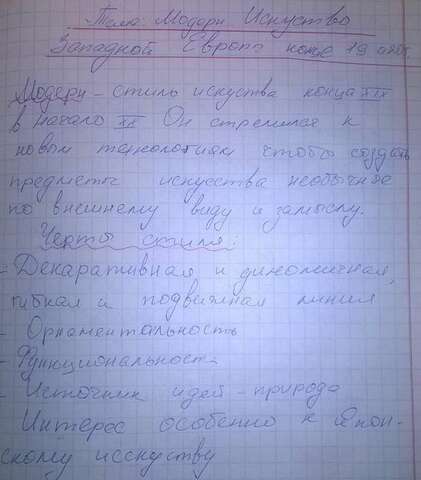 Тема: Модерн. Искуство
Западной Европы конца 19
Модерн - стиль искуства конца XIX
в начало XX Он стремился к
новым технологиям чтобы создать
предметы искусства необычные
по внешнему виду и замыслу.
Черты стиля:
- Декаративная и динамичная,
гибкая и подвижная линия
- Орнаментальность
- Функциональность
- Источник идей - природа
Интерес особенно к Япон-
скому исскуству